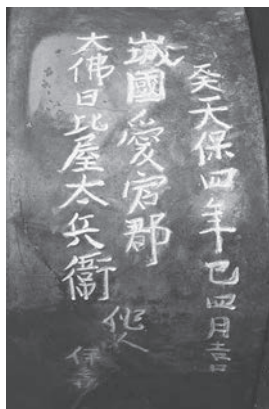 癸天保四年巳四月吉日
城國愛宕郡
大佛日比屋太兵衛
作人